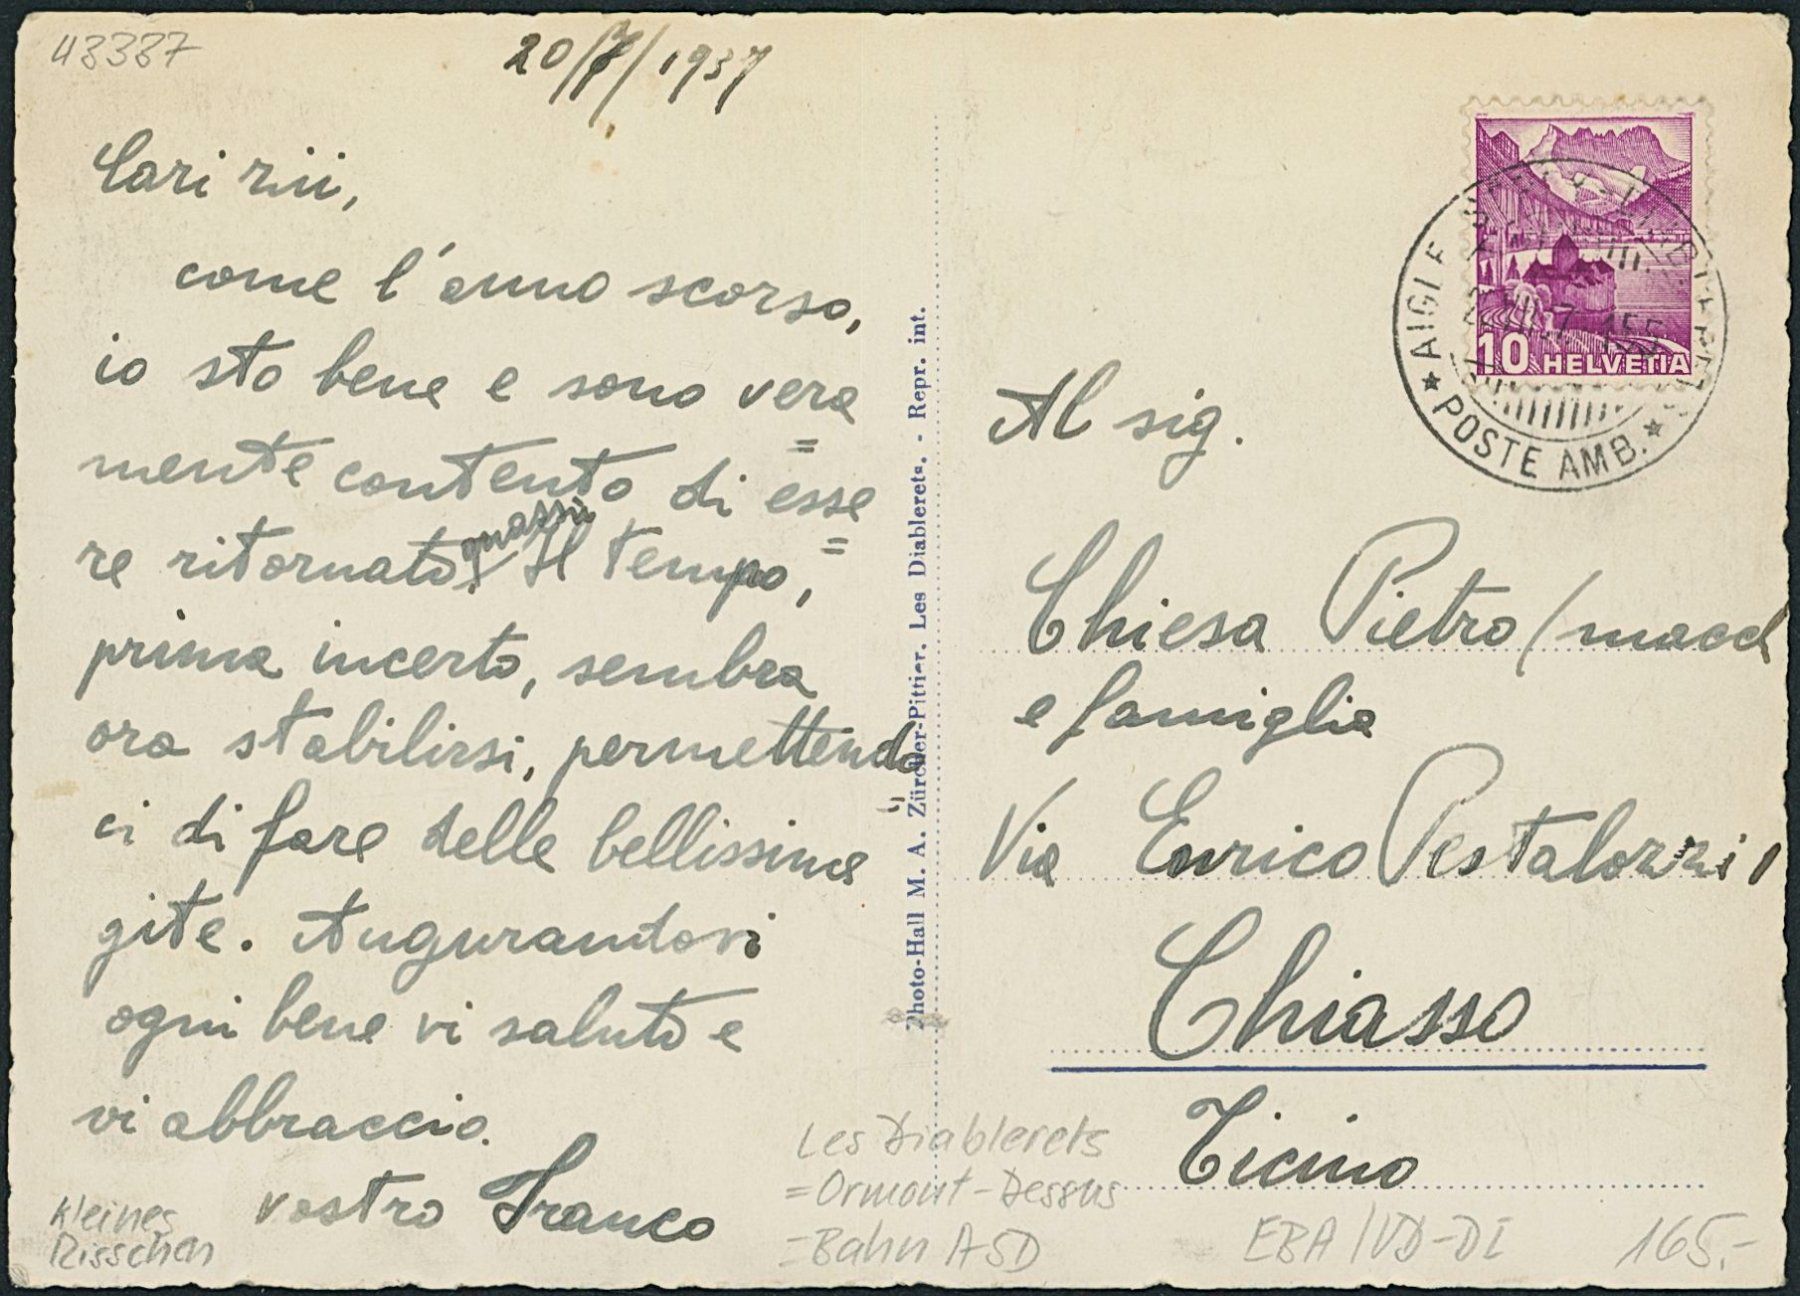 43387
20/7/1937
Cari zii,
come l'anno scorso,
io sto bene e sono vera
=
mente contento di esse
=
re ritornato quassù. Il tempo,
prima incerto, sembra
ora stabilirsi, permettendo
=
ci di fare delle bellissime
gite. Augurandovi
ogni bene vi saluto e
vi abbraccio.
vostro Franco
Kleines
Risschen
Photo-Hall M. A. Zürcher-Pittier, Les Diablerets. - Repr. int.
10 HELVETIA
AIGLE
POSTE AMB.
Al sig.
Chiesa Pietro (macch
e famiglia
Via Enrico Pestalozzi 1
Chiasso
Ticino
Les Diablerets
=Ormont-Dessus
=Bahn ASD
EBA/VD-DI
165.-